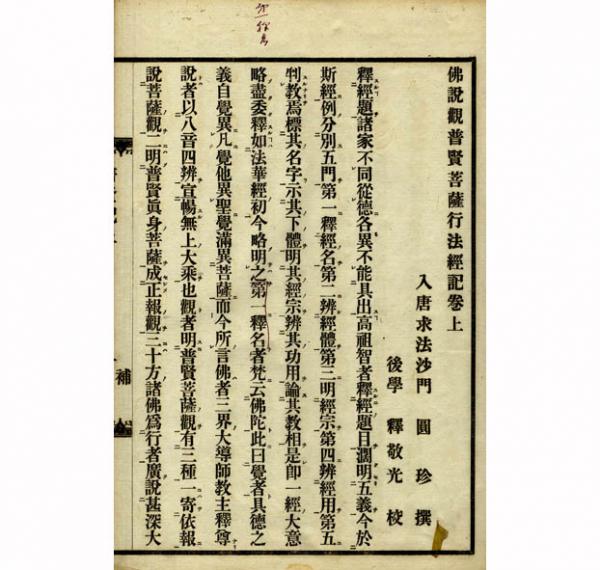 佛說觀普賢菩薩行法經記卷上
入唐求法沙門 圓珍 撰
後學 釋敬光 校
釋經題諸家不同從德各異不能具出高祖智者釋經題目濶明五義今於
斯經例分別五門第一釋經名第二辨經體第三明經宗第四辨經用第五
判教焉標其名字示其下體明其經宗辨其功用論其教相是卽一經大意
略盡委釋如法華經初今略明之第一釋名者梵云佛陀此曰覺者具德之
義自覺異凡覺他異聖覺滿異菩薩而今所言佛者三界大導師教主釋尊
說者以八音四辨宣暢無上大乘也觀者明普賢菩薩觀有三種一寄依報
說菩薩觀二明普賢眞身菩薩成正報觀三十方諸佛爲行者廣說甚深大
補